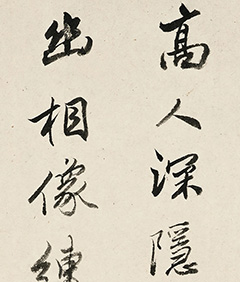 高人深隱
幽相像練